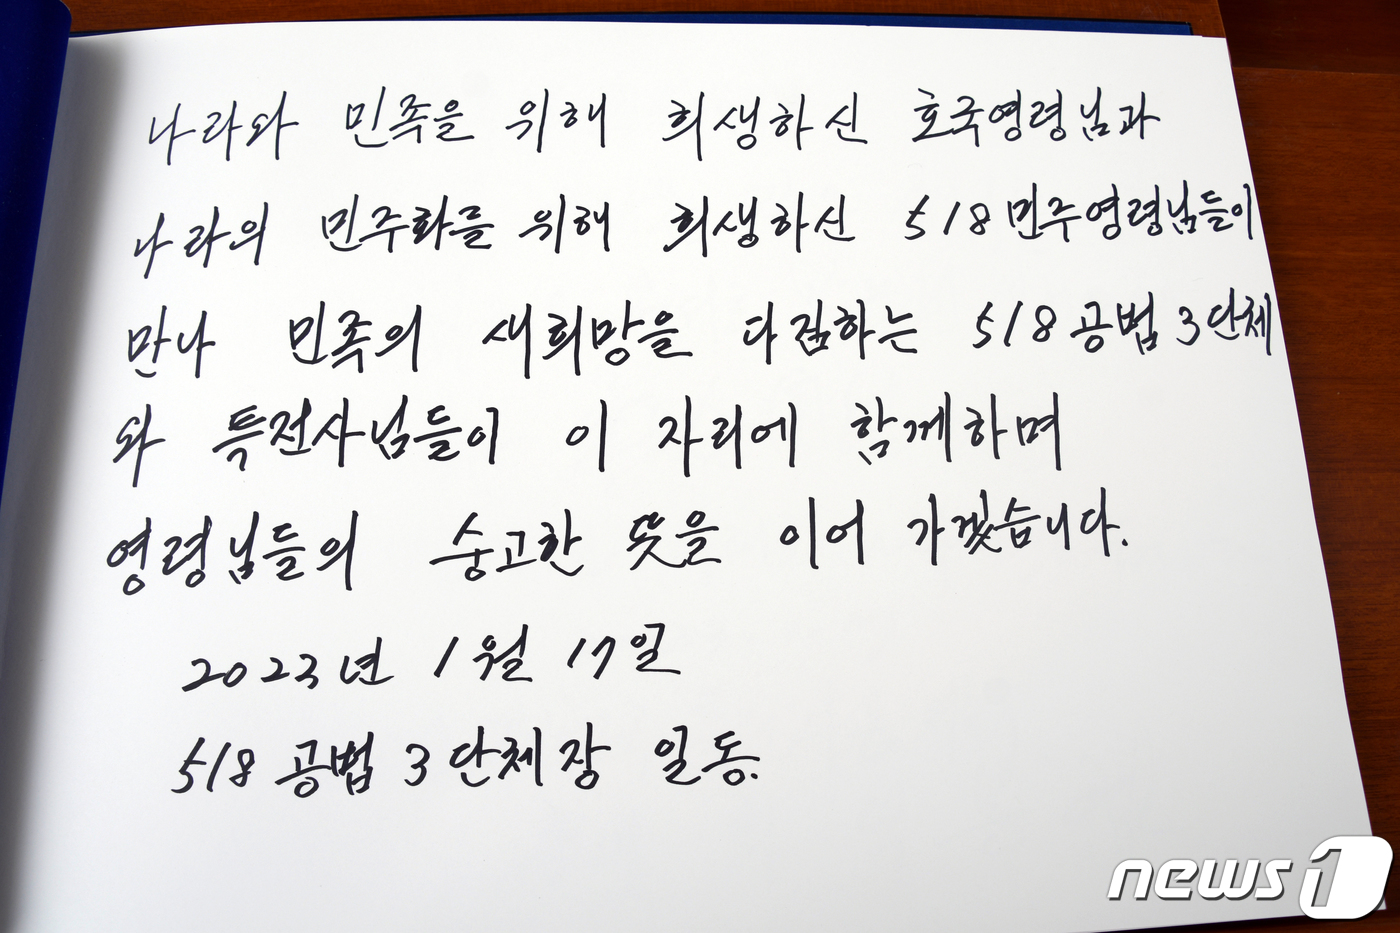 나라와 민족을 위해 희생하신 호국영령님과
나라의 민주화를 위해 희생하신 518 민주영령님들이
만나 민족의 새희망을 다짐하는 518 공법 3 단체
와 특전사님들이 이 자리에 함께하며
영령님들의 숭고한 뜻을 이어 가겠습니다.
2023년 1월 17일
518 공법 3 단체장 일동.
news1